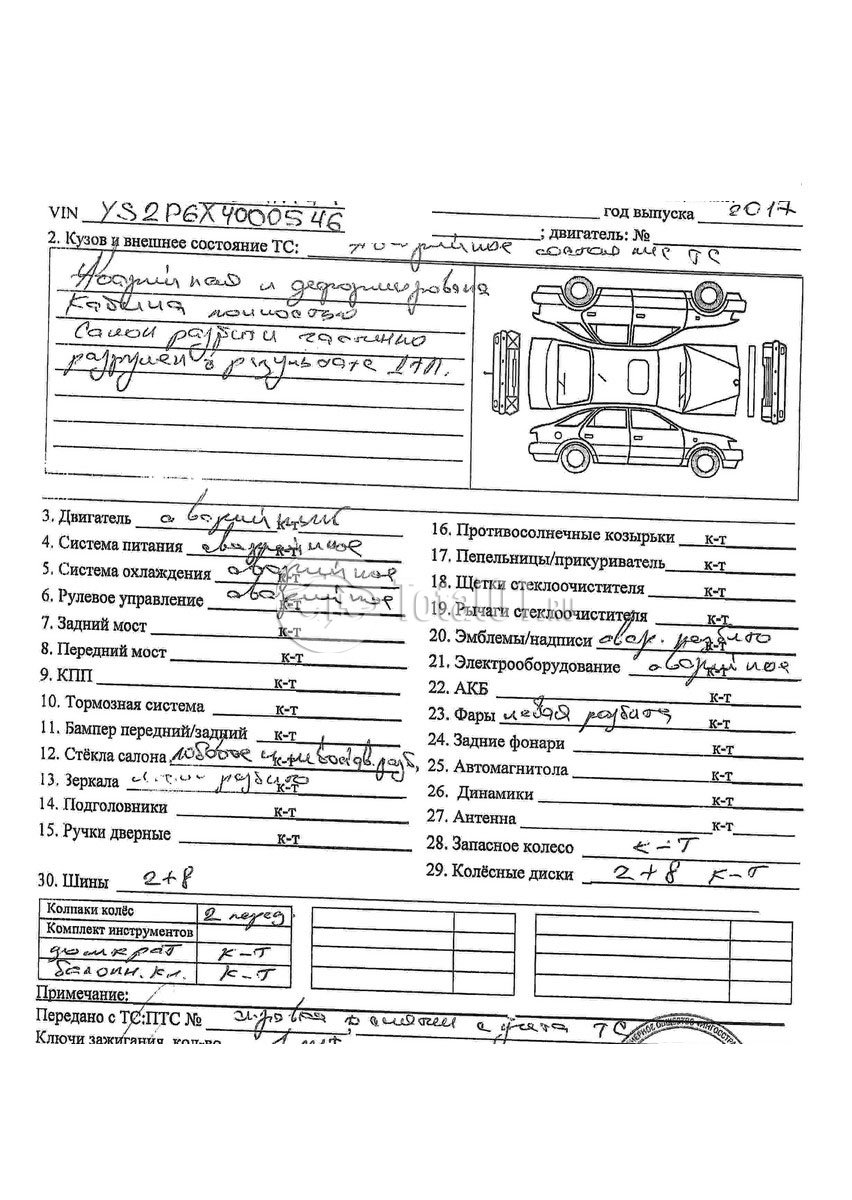 VIN YS2P6X4000546 год выпуска 2017
; двигатель: №
2. Кузов и внешнее состояние ТС: состояние ТС
Аварийная и деформирована
Кабина полностью
Салон разбит и частично
разрушен в результате ДТП.
3. Двигатель аварийный к-т
4. Система питания аварийное к-т
5. Система охлаждения аварийное к-т
6. Рулевое управление аварийное к-т
7. Задний мост к-т
8. Передний мост к-т
9. КПП к-т
10. Тормозная система к-т
11. Бампер передний/задний к-т
12. Стёкла салона лобовое к-т
13. Зеркала разбито к-т
14. Подголовники к-т
15. Ручки дверные к-т
16. Противосолнечные козырьки к-т
17. Пепельницы/прикуриватель к-т
18. Щетки стеклоочистителя к-т
19. Рычаги стеклоочистителя к-т
20. Эмблемы/надписи авар. разбито
21. Электрооборудование аварийное к-т
22. АКБ к-т
23. Фары левая разбита к-т
24. Задние фонари к-т
25. Автомагнитола к-т
26. Динамики к-т
27. Антенна к-т
28. Запасное колесо к-т
29. Колёсные диски 2+8 к-т
Total01.ru
30. Шины 2+8
Колпаки колёс 2 перед.
Комплект инструментов
домкрат к-т
балонн. кл. к-т
Примечание:
Передано с ТС:ПТС № с учета ТС
Ключи зажигания, кол-во 1 шт